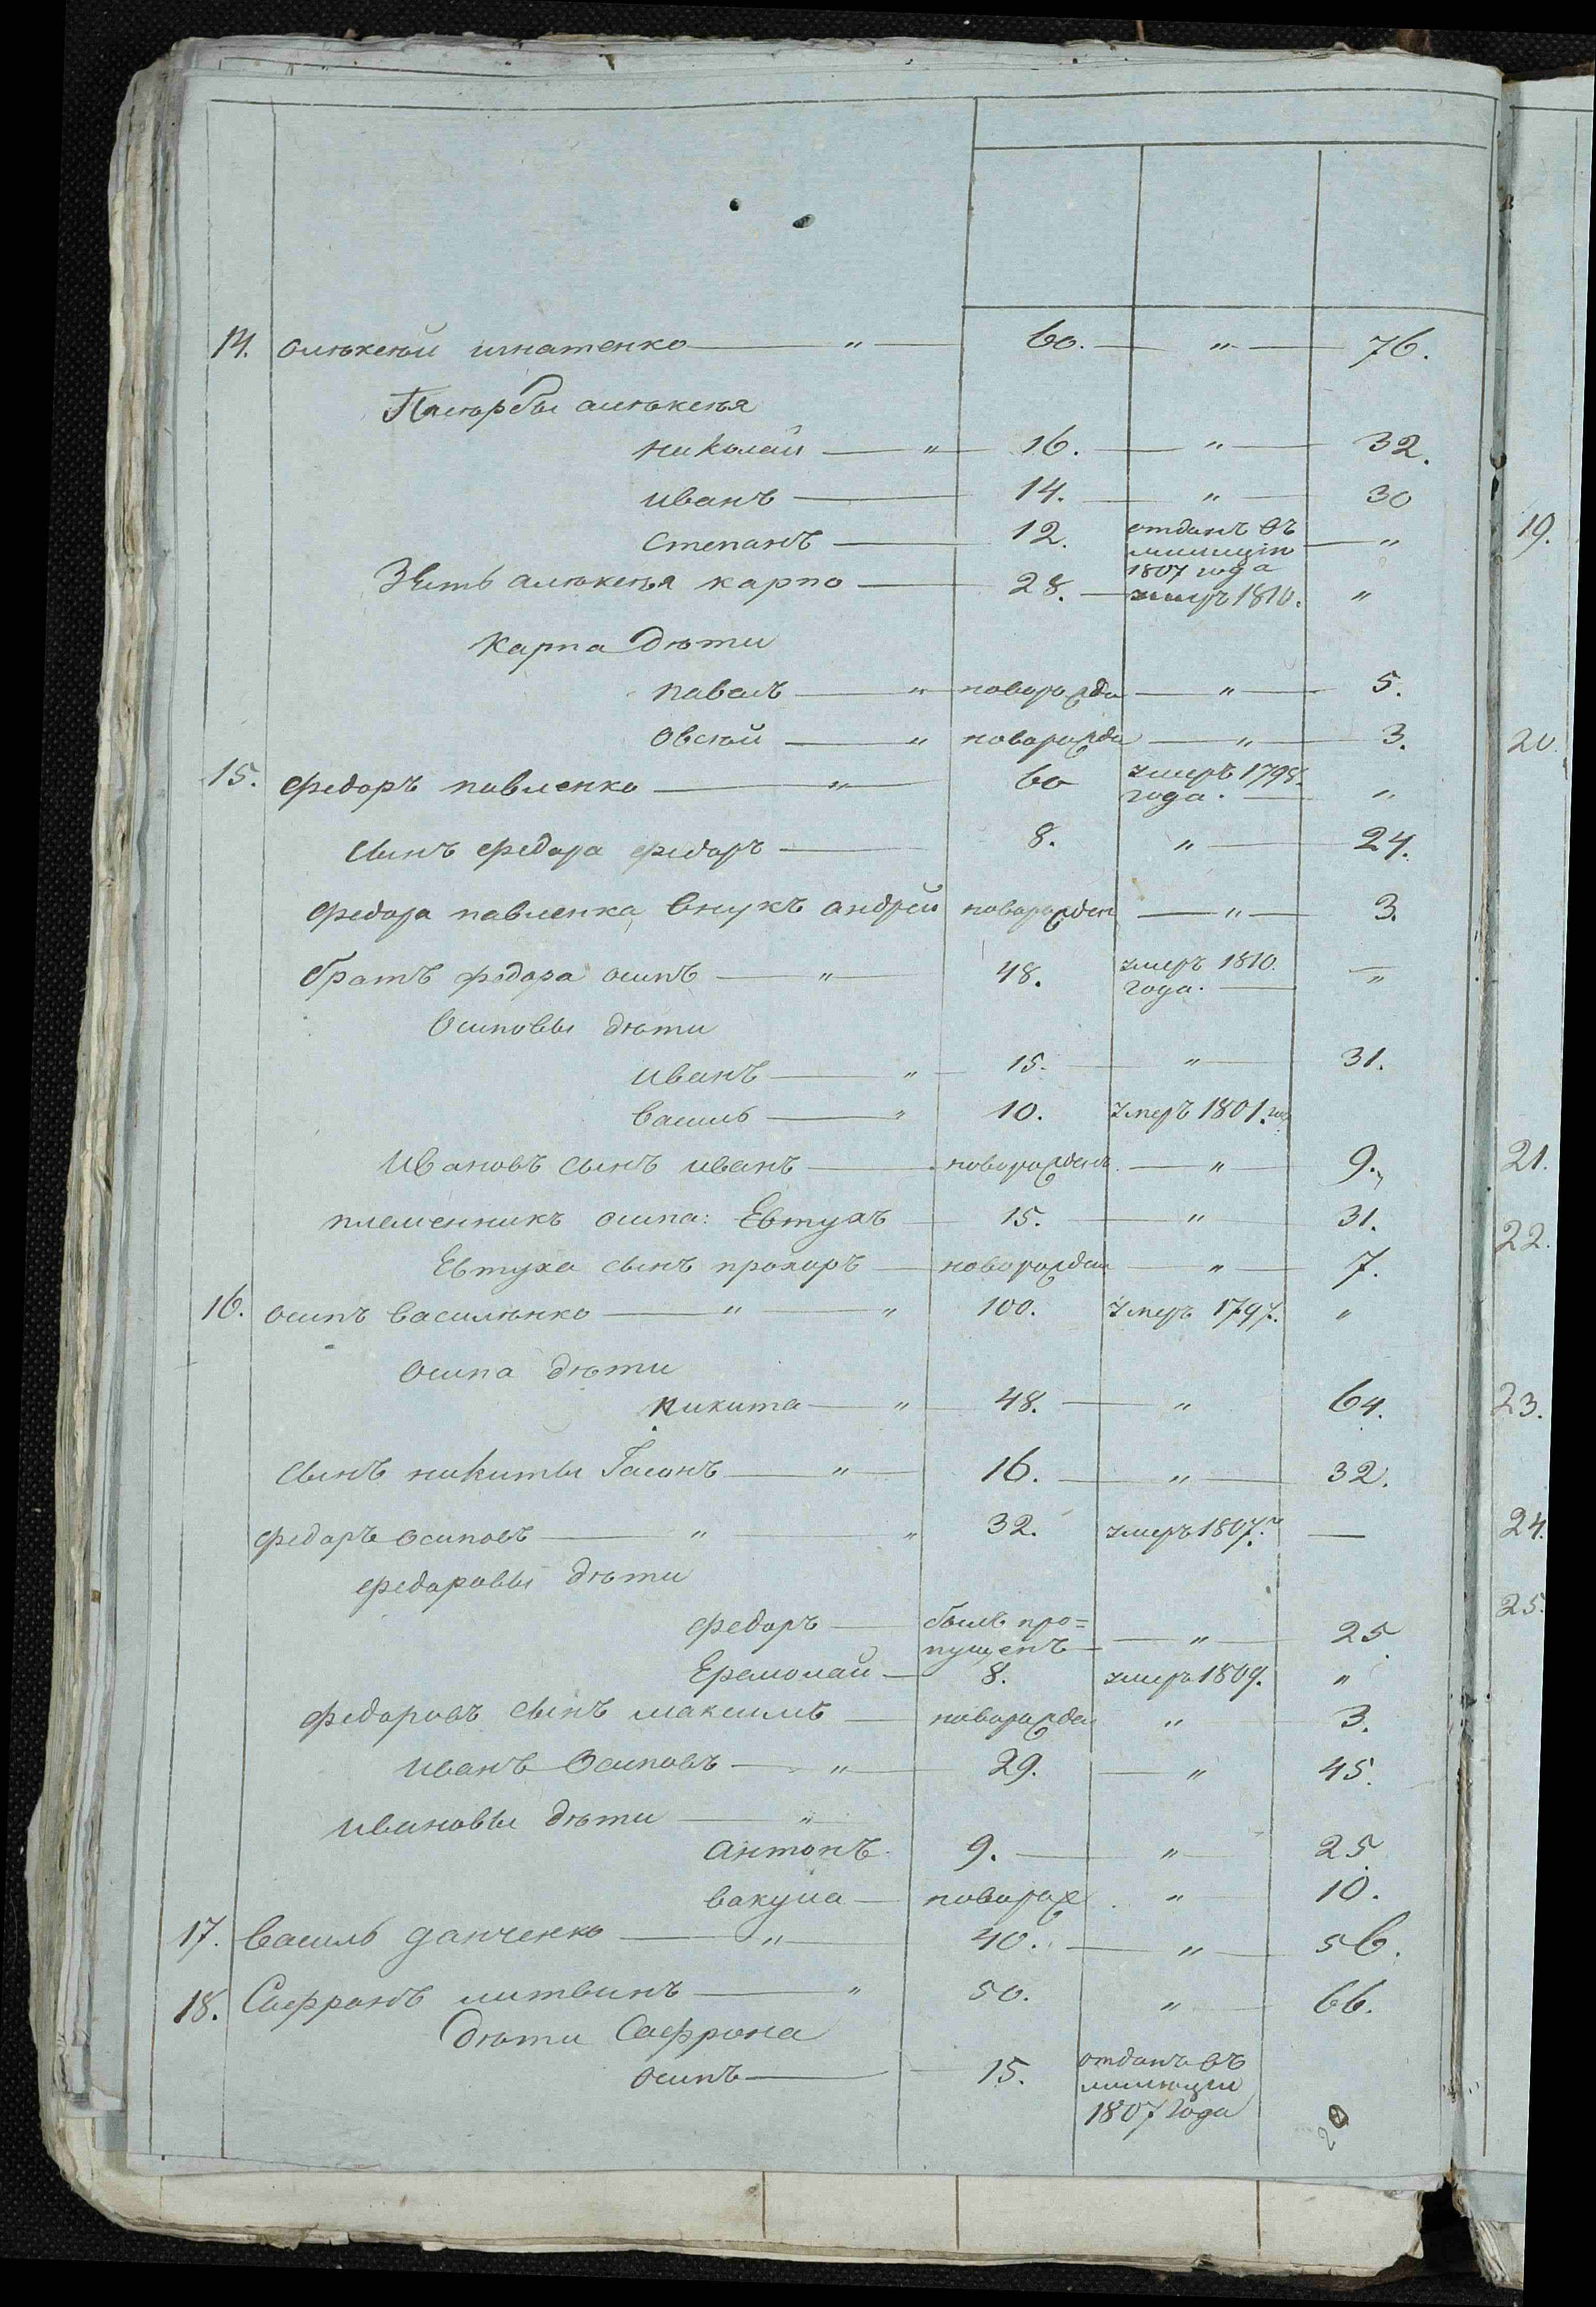 14. олѣксѣй игнатенко — " — 60. — " — 76.
алѣксѣя
николай — " — 16. — " — 32.
иванъ — 14. — " — 30
степанъ — 12. отданъ въ милицiю 1807 года — "
Зять алѣксѣя карпо — 28. — умеръ 1810. "
карпа дѣти
павелъ — " — новорожде — " — 5.
овсѣй — " новорожде — " — 3.
15. федоръ павленко — " — 60 умеръ 1798. года. — "
сынъ федора федоръ — 8. " — 24.
федора павленка внукъ андрей новорожден — " — 3.
братъ федора осипъ — " — 48. умеръ 1810. года. — "
Осиповы дѣти
иванъ — " — 15. — " — 31.
василь — " 10. умеръ 1801. го
Ивановъ сынъ иванъ — новорожденъ — " — 9.
племенникъ осипа: Евтухъ — 15. — " — 31.
Евтуха сынъ прохоръ — новорожден — " — 7.
16. осипъ василѣнко — " — " 100. умеръ 1797. "
осипа дѣти
никита — " — 48. — " 64.
сынъ никиты Гасонъ — " — 16. — " — 32.
федоръ осиповъ — " — " 32. умеръ 1807. —
федоровы дѣти
федоръ — былъ про=
пущенъ — " — 25
Ермолай — 8. умеръ 1809. "
федоровъ сынъ максимъ — новорожде " — 3.
иванъ Осиповъ — " — 29. — " 45.
ивановы дѣти — "
антонъ 9. — " — 25
вакула — новорож. " — 10.
17. василь данченко — " — 40. — " — 56.
18. Сафронъ литвинъ — " 50. " — 66.
дѣти Сафрона
осипъ — 15. отданъ въ
милицiи
1807 года
19.
20.
21.
22.
23.
24.
25.